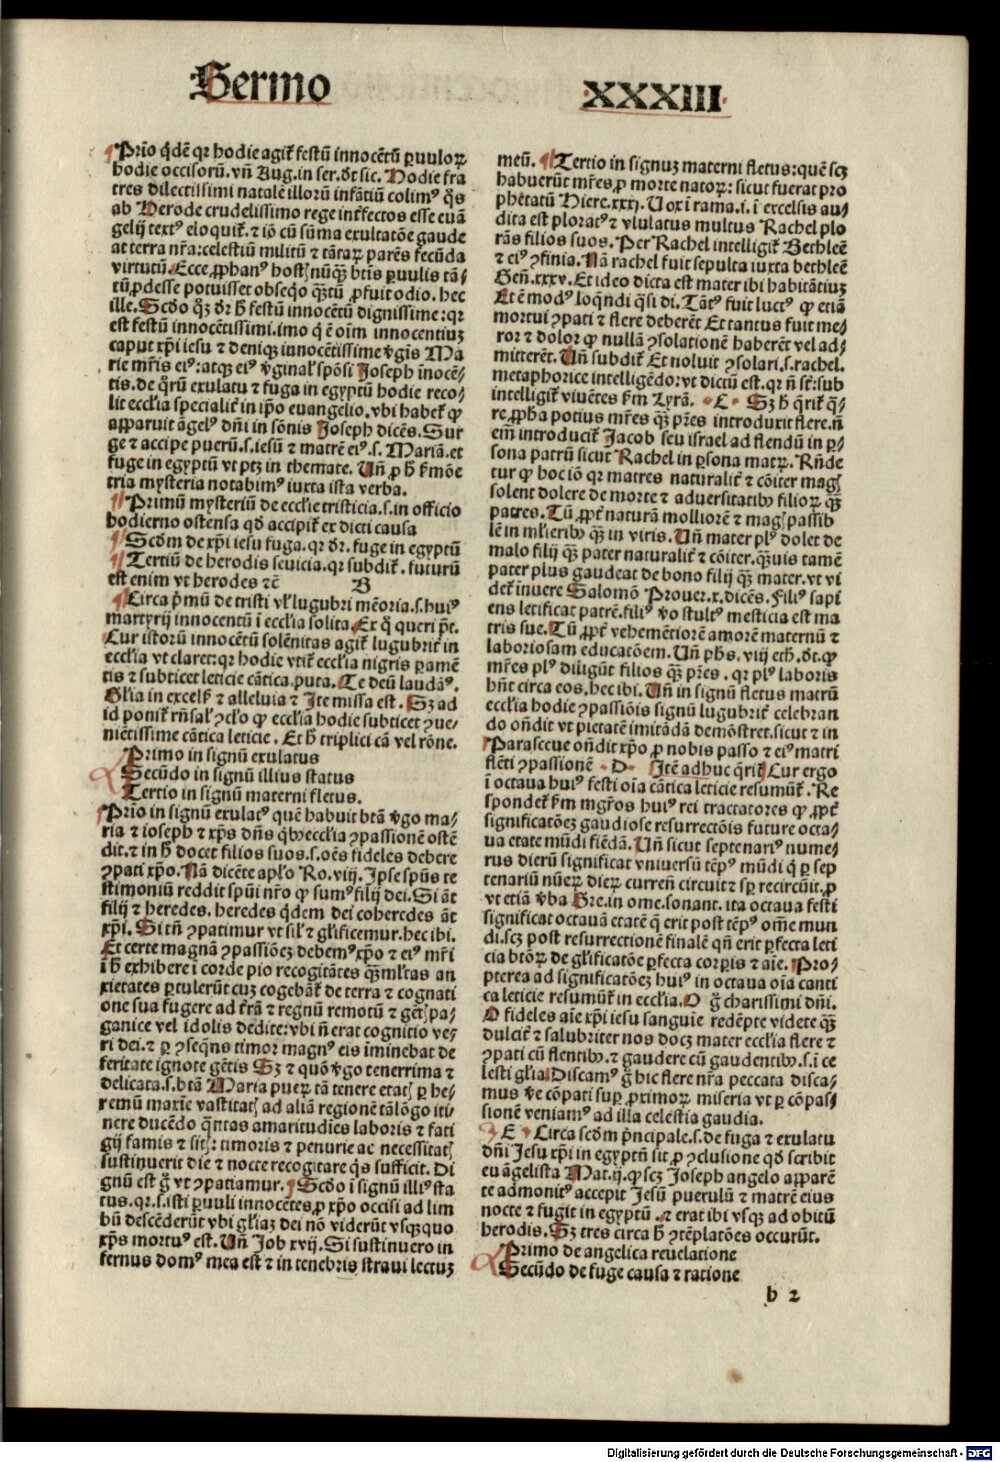 Sermo
XXXIII
¶Prīo q̄dē qꝛ hodie agit᷑ festū innocētū ꝑuuloꝝ
hodie occisorū. vn̄ Aug. in ser. dt sic. Hodie fra
tres dilectissimi natalē illorū infātiū colimꝰ q̄s
ab Herode crudelissimo rege int᷑fectos esse euā
gelij textꝰ eloquit᷑. ⁊ iō cū sūma exultatōe gaude
at terra nr̄a: celestiū militū ⁊ tātaꝝ parēs fecūda
virtutū. Ecce, ꝓphanꝰ hostꝭ nūqꝫ̄ btīs ꝑuulis tā-
tū, ꝓdesse potuisset obseqo qꝫ̄tū ꝓfuit odio. hec
ille. Scd̄o qꝫ dr̄ h̄ festū innocētū dignissime: qꝛ
est festū innocētissimi. imo q̄ ē oīm innocentiuꝫ
caput xp̄i iesu ⁊ deniqꝫ innocētissime v̄gīs Ma
rie mr̄is eiꝰ: atqꝫ eiꝰ v̄ginal᷑ spōsi Joseph īnocē-
tis. de q̄rū exulatu ⁊ fuga in egyptū hodie reco-
lit eccl̄ia specialit᷑ in ip̄o euangelio. vbi habet᷑ ꝙ
apparuit āgelꝰ dn̄i in sōnis Joseph dicēs. Sur
ge ⁊ accipe puerū .s. iesū ⁊ matrē eiꝰ .s. Mariā. et
fuge in egyptū vt ptꝫ in themate. Un̄ ꝓ h̄ ẜmōe
tria mysteria notabimꝰ iuxta ista verba.
¶Primū mysteriū de eccl̄ie tristicia .s. in officio
hodierno ostensa qd̄ accipit᷑ ex dicti causa
¶Scd̄m de xp̄i iesu fuga. qꝛ dr̄. fuge in egyptū
¶Tertiū de herodis seuicia. qꝛ subdit᷑. futurū
est enim vt herodes ⁊c̄ B
¶Circa p̄mū de tristi vl᷑ lugubri mēoria .s. huiꝰ
martyrij innocentū ī eccl̄ia solita. Ex q̄ queri pt̄.
Cur istorū innocētū solēnitas agit᷑ lugubrit᷑ in
eccl̄ia vt claret: qꝛ hodie vtit᷑ eccl̄ia nigris ꝑamē
tis ⁊ subticet leticie cātica. puta. Te deū laudāꝰ.
Gl̄ia in excelꝭ ⁊ alleluia ⁊ Jte missa est. Sꝫ ad
id ponit᷑ rn̄sal᷑ ꝯcl̄o ꝙ eccl̄ia hodie subticet ꝯue-
niētissime cātica leticie. Et h̄ triplici cā vel rōne.
Primo in signū exulatus
Secūdo in signū illius status
Tertio in signū materni fletus.
¶Prīo in signū exulatꝰ quē habuit btā v̄go ma-
ria ⁊ ioseph ⁊ xp̄s dn̄s q̄ꝫ eccl̄ia ꝯpassionē ostē
dit. ⁊ in h̄ docet filios suos .s. oēs fideles debere
ꝯpati xp̄o. Nā dicēte apl̄o Ro. viij. Ipse sp̄us te
stimoniū reddit sp̄ui nr̄o ꝙ sumꝰ filij dei. Si āt
filij ⁊ heredes. heredes q̄dem dei coheredes āt
xp̄i. Si tn̄ ꝯpatimur vt sil᷑ ⁊ gl̄ificemur. hec ibi.
Et certe magnā ꝯpassiōeꝫ debemꝰ xp̄o ⁊ eiꝰ mr̄i
ī h̄ exhibere ī corde pio recogitātes qꝫ̄ ml̄tas an
xietates ꝑtulerūt cuꝫ cogebāt᷑ de terra ⁊ cognati
one sua fugere ad t᷑rā ⁊ regnū remotū ⁊ gētꝭ pa-
ganice vel idolis dedite: vbi n̄ erat cognitio ve-
ri dei. ⁊ ꝑ ꝯseqn̄s timor magnꝰ eis īminebat de
feritate ignote gētis Sꝫ ⁊ quō v̄go tenerrima ⁊
delicata .s. btā Maria pueꝝ tā tenere etatꝭ ꝑ he-
remū maxīe vastitatꝭ ad aliā regionē tālōgo iti-
nere ducēdo q̄ntas amaritudīes laboris ⁊ fati
gij famis ⁊ sitꝭ: timoris ⁊ penurie ac necessitatꝭ
sustinuerit die ⁊ nocte recogitare q̄s sufficit. Di
gnū est ḡ vt ꝯpatiamur. ¶Scd̄o ī signū illiꝰ sta
tus. qꝛ .s. isti ꝑuuli innocētes, ꝓ xp̄o occisi ad lim
bū descēderūt vbi gl̄iaꝫ dei nō viderūt vsqꝫquo
xp̄s mortuꝰ est. Un̄ Job xvij. Si sustinuero in
fernus domꝰ mea est ⁊ in tenebris straui lectuꝫ
meū. ¶Tertio in signuꝫ materni fletus: quē scꝫ
habuerūt mr̄es, ꝓ morte natoꝝ: sicut fuerat pro
phētatū Hiere. xxxj. Uox ī rama .i. ī excelsis au-
dita est ploratꝰ ⁊ vlulatus multus Rachel plo
rās filios suos. Per Rachel intelligit᷑ Bethleē
⁊ eiꝰ ꝯfinia. Nā rachel fuit sepulta iuxta bethleē
Gen̄. xxxv. Et ideo dicta est mater ibi habitātiuꝫ
Et ē modꝰ loqn̄di q̄si di. Tātꝰ fuit luctꝰ ꝙ etiā
mortui ꝯpati ⁊ flere deberēt Et tantus fuit me-
ror ⁊ dolor ꝙ nullā ꝯsolationē haberēt vel ad-
mitterēt. Un̄ subdit᷑ Et noluit ꝯsolari .s. rachel.
metaphorice intelligēdo: vt dictū est. qꝛ n̄ sr̄: sub
intelligit᷑ viuētes ẜm Lyrā. C Sꝫ h̄ q̄rit᷑ q̄-
re, ꝓpha potius mr̄es qꝫ̄ pr̄es introduxit flere. n̄
em̄ introducit᷑ Jacob seu israel ad flendū in ꝑ-
sona patrū sicut Rachel in ꝑsona matꝝ. Rn̄de
tur ꝙ hoc iō qꝛ matres naturalit᷑ ⁊ cōiter magꝭ
solent dolere de morte ⁊ aduersitatibꝫ filioꝝ qꝫ̄
patres. Tū, ꝓpt᷑ naturā molliorē ⁊ magꝭ passib
lē in ml᷑ieribꝫ qꝫ̄ in viris. Un̄ mater plꝰ dolet de
malo filij qꝫ̄ pater naturalit᷑ ⁊ cōiter. qꝫ̄uis tamē
pater plus gaudeat de bono filij qꝫ̄ mater. vt vi
det᷑ īnuere Salomō Prouer. x. dicēs. Filiꝰ sapi
ens letificat patrē. filiꝰ v̄o stultꝰ mesticia est ma
tris sue. Tū, ꝓpt᷑ vehemētiorē amorē maternū ⁊
laboriosam educatōem. Un̄ ph̄s. viij eth. dt. ꝙ
mr̄es plꝰ diligūt filios qꝫ̄ pr̄es. qꝛ plꝰ laboris
hn̄t circa eos. hec ibi. Un̄ in signū fletus matrū
eccl̄ia hodie ꝯpassiōis signū lugubrit᷑ celebran
do on̄dit vt pietatē imitādā demōstret. sicut ⁊ in
Parasceue on̄dit xp̄o ꝓ nobis passo ⁊ eiꝰ matri
flēti ꝯpassionē D Jtē adhuc q̄rit᷑ Cur ergo
ī octaua huiꝰ festi oīa cātica leticie resumūt᷑. Re
spondet᷑ ẜm mgr̄os huiꝰ rei tractatores ꝙ, ꝓpt᷑
significatōeꝫ gaudiose resurrectōis future octa-
ua etate mūdi fiēdā. Un̄ sicut septenariꝰ nume-
rus dierū significat vniuersū tēpꝰ mūdi q̄ ꝑ sep
tenariū nūeꝝ dieꝝ curren̄ circuit ⁊ sꝑ recircūit. ꝓ
vt etiā v̄ba Gre. in ome. sonant. ita octaua festi
significat octauā etatē q̄ erit post tēpꝰ om̄e mun
di. scꝫ post resurrectionē finalē qn̄ erit ꝑfecta leti
cia btōꝝ de gl̄ificatōe ꝑfecta corꝑis ⁊ aīe. Pro-
pterea ad significatōeꝫ huiꝰ in octaua oīa canti
ca leticie resumūt᷑ in eccl̄ia. O ḡ charissimi dn̄i.
O fideles aīe xp̄i iesu sanguīe redēpte videte qꝫ̄
dulcit᷑ ⁊ salubriter nos docꝫ mater eccl̄ia flere ⁊
ꝯpati cū flentibꝫ. ⁊ gaudere cū gaudentibꝫ .s. ī ce
lesti gl̄ia Discamꝰ ḡ hic flere nr̄a peccata disca-
mus v̄e cōpati suꝑ ꝓximoꝝ miseria vt ꝑ cōpas-
sionē veniamꝰ ad illa celestia gaudia.
E Circa scd̄m p̄ncipale .s. de fuga ⁊ exulatu
dn̄i Jesu xp̄i in egyptū sit ꝓ ꝯclusione qd̄ scribit
euāgelista Mat. ij. ꝙ scꝫ Joseph angelo apparē
te admonitꝰ accepit Jesū puerulū ⁊ matrē eius
nocte ⁊ fugit in egyptū. ⁊ erat ibi vsqꝫ ad obitū
herodis. Sꝫ tres circa h̄ ꝯtēplatōes occurūt.
Primo de angelica reuelatione
Secūdo de fuge causa ⁊ ratione
b 2
Digitalisierung gefördert durch die Deutsche Forschungsgemeinschaft - DFG